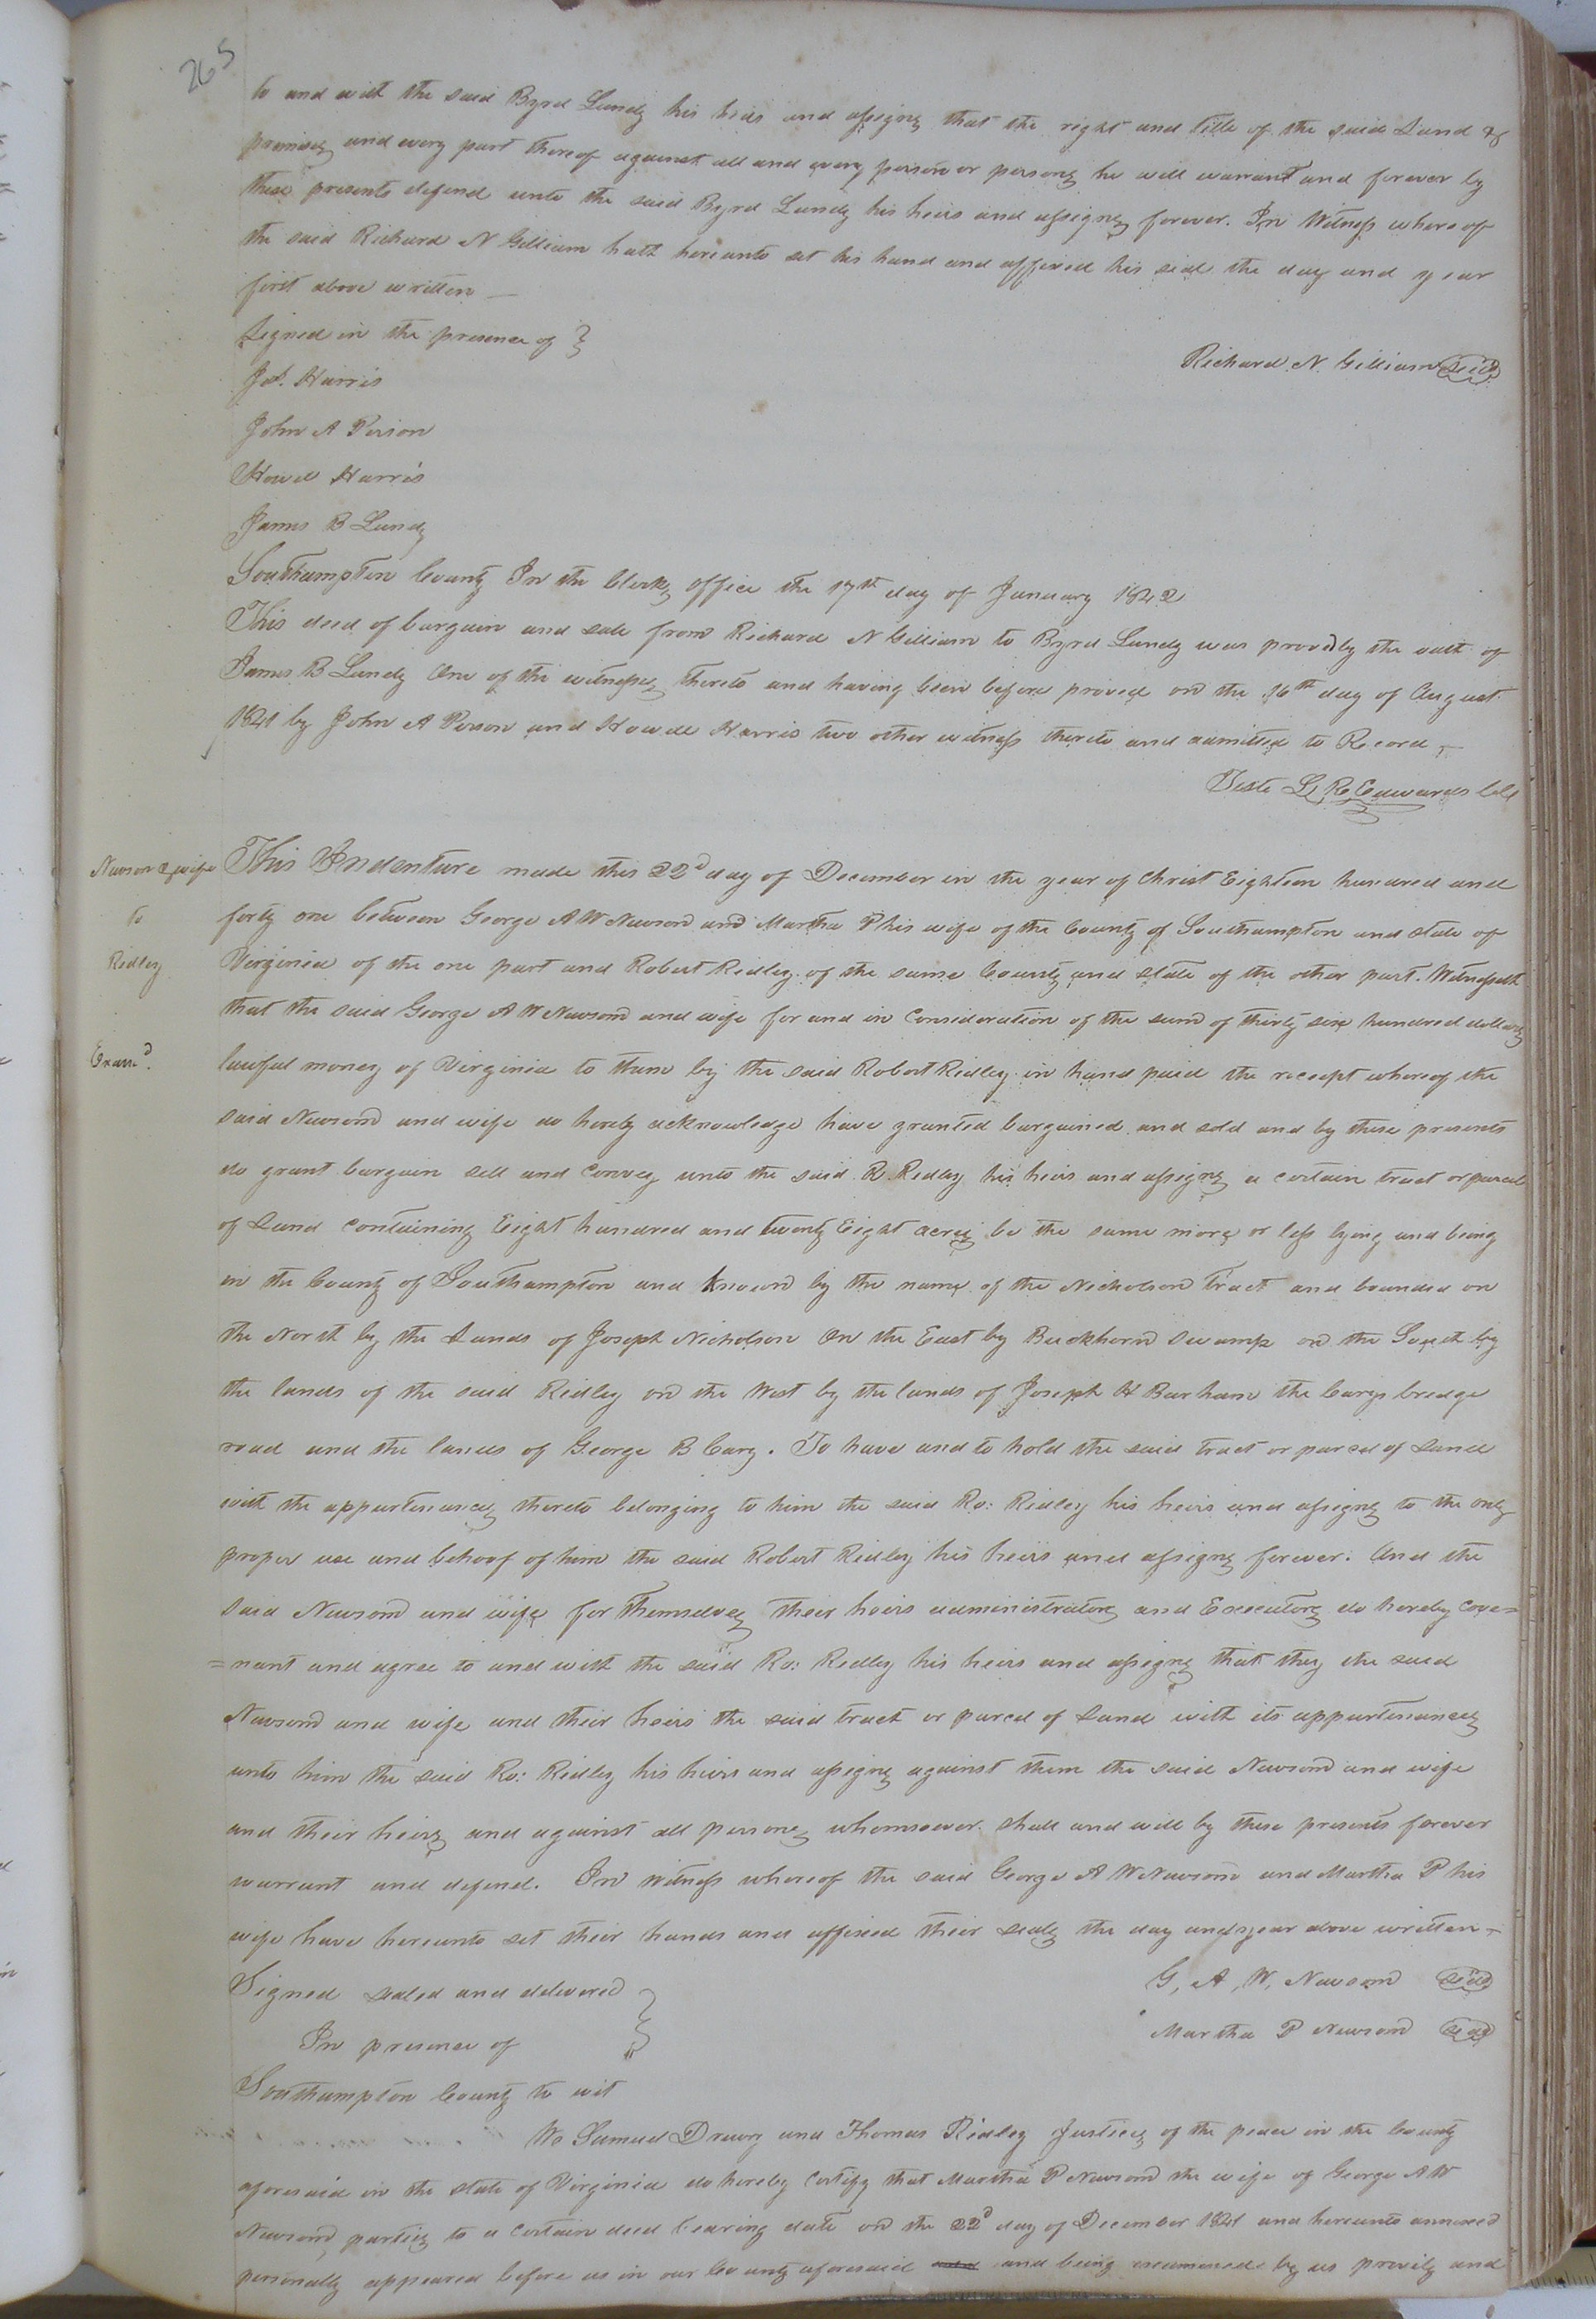 265
to and with the said Byrd Lundy his heirs and assigns that the right and title of the said Land &
premises and every part thereof against all and every person or persons he will warrant and forever by
these presents defend unto the said Byrd Lundy his heirs and assigns forever. In Witness whereof
the said Richard N Gilliam hath hereunto set his hand and affixed his seal the day and year
first above written —
Signed in the presence of }
Richard. N. Gilliam Seal
Jas. Harris
John A Person
Howel Harris
James B Lundy
Southampton County In the Clerks office the 17th day of January 1842
This deed of bargain and sale from Richard N Gilliam to Byrd Lundy was proved by the oath of
James B Lundy One of the witnesses thereto and having been before proved on the 16th day of August
1841 by John A Person and Howell Harris two other witness thereto and admitted to Record —
Teste L. R. Edwards Clk
Newsom & wife
to
Ridley
Examd.
This Indenture made this 22d day of December in the year of Christ Eighteen hundred and
forty one between George A W Newsom and Martha P his wife of the County of Southampton and state of
Virginia of the one part and Robert Ridley of the same County and state of the other part. Witnesseth
that the said George A W Newsom and wife for and in Consideration of the sum of thirty six hundred dollars
lawful money of Virginia to them by the said Robert Ridley in hand paid the receipt whereof the
said Newsom and wife do hereby acknowledge have granted bargained and sold and by these presents
do grant bargain sell and Convey unto the said R. Ridley his heirs and assigns a certain tract or parcel
of Land containing Eight hundred and twenty Eight acres be the same more or less lying and being
in the County of Southampton and known by the name of the Nicholson Tract and bounded on
the North by the Lands of Joseph Nicholson On the East by Buckhorn swamp on the South by
the lands of the said Ridley on the West by the lands of Joseph H Barham the Carys bridge
road and the lands of George B Cary. To have and to hold the said tract or parcel of Land
with the appurtenances thereto belonging to him the said Ro: Ridley his heirs and assigns to the only
proper use and behoof of him the said Robert Ridley his heirs and assigns forever. And the
said Newsom and wife for themselves their heirs administrators and Executors do hereby cove=
=nant and agree to and with the said Ro: Ridley his heirs and assigns that they the said
Newsom and wife and their heirs the said tract or parcel of Land with its appurtenances
unto him the said Ro: Ridley his heirs and assigns against them the said Newsom and wife
and their heirs and against all persons whomsoever shall and will by these presents forever
warrant and defend. In witness whereof the said George A W Newsom and Martha P his
wife have hereunto set their hands and affixed their seals the day and year above written —
Signed sealed and delivered }
G, A, W, Newsom Seal
In presence of
Martha P Newsom Seal
Southampton County to wit
We Samuel Drewry and Thomas Ridley Justices of the peace in the County
aforesaid in the state of Virginia do hereby Certify that Martha P Newsom the wife of George A W
Newsom, parties to a certain deed bearing date on the 22d day of December 1841 and hereunto annexed
personally appeared before us in our County aforesaid and being examined by us privily and